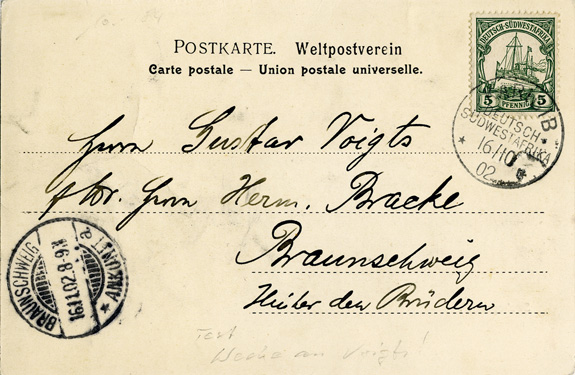 POSTKARTE. Weltpostverein
Carte postale — Union postale universelle.
DEUTSCH-SÜDWESTAFRIKA
5 PFENNIG 5
DEUTSCH-
SÜDWESTAFRIKA
16/10
02
Herrn Gustav Voigts
Herrn Herm. Bracke
Braunschweig
Hinter den Brüdern
BRAUNSCHWEIG
16.11.02.8-9V.
* ANKUNFT a.
Text
an Voigts!